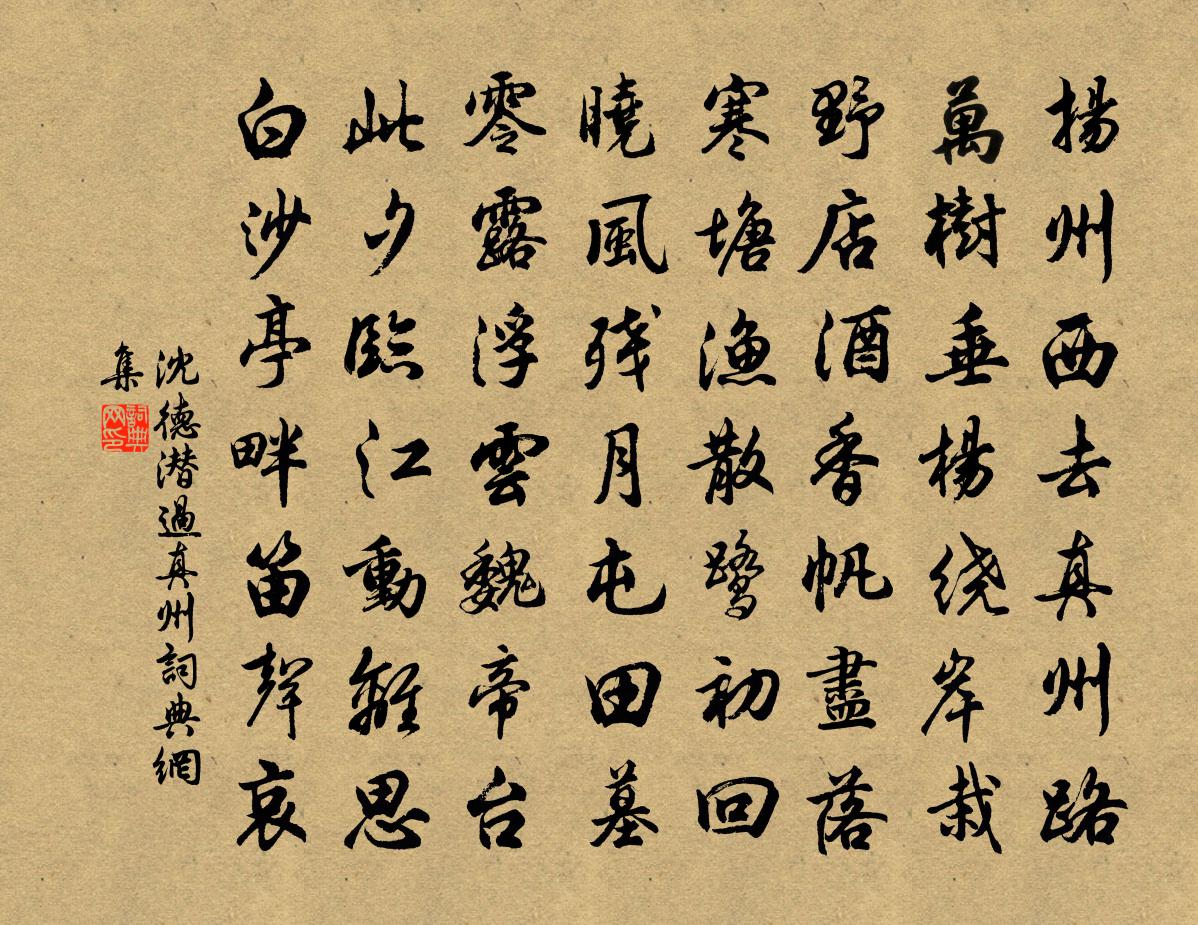 揚州西去真州路
萬樹垂楊绕岸栽
野店酒香帆盡落
寒塘漁散鷺初回
曉風残月屯田墓
零露浮雲魏帝台
此夕臨江動離思
白沙亭畔笛聲哀
沈德潜過真州詞典網
集
詞典
网印